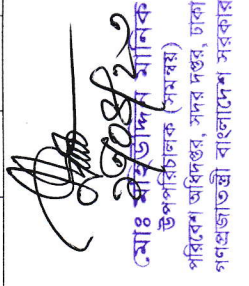 মোঃ মাঈউদ্দিন মানিক
উপপরিচালক (সমন্বয়)
পরিবেশ অধিদপ্তর, সদর দপ্তর, ঢাকা
গণপ্রজাতন্ত্রী বাংলাদেশ সরকার